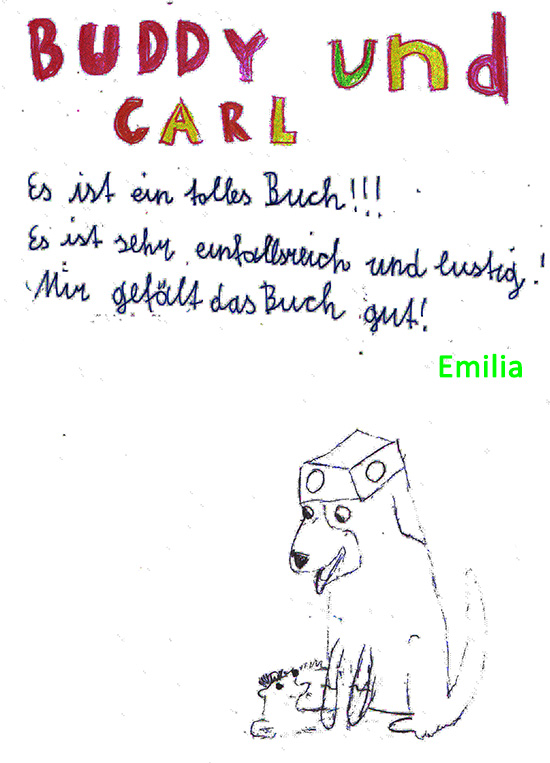 BUDDY und
CARL
Es ist ein tolles Buch!!!
Es ist sehr einfallsreich und lustig!
Mir gefält das Buch gut!
Emilia